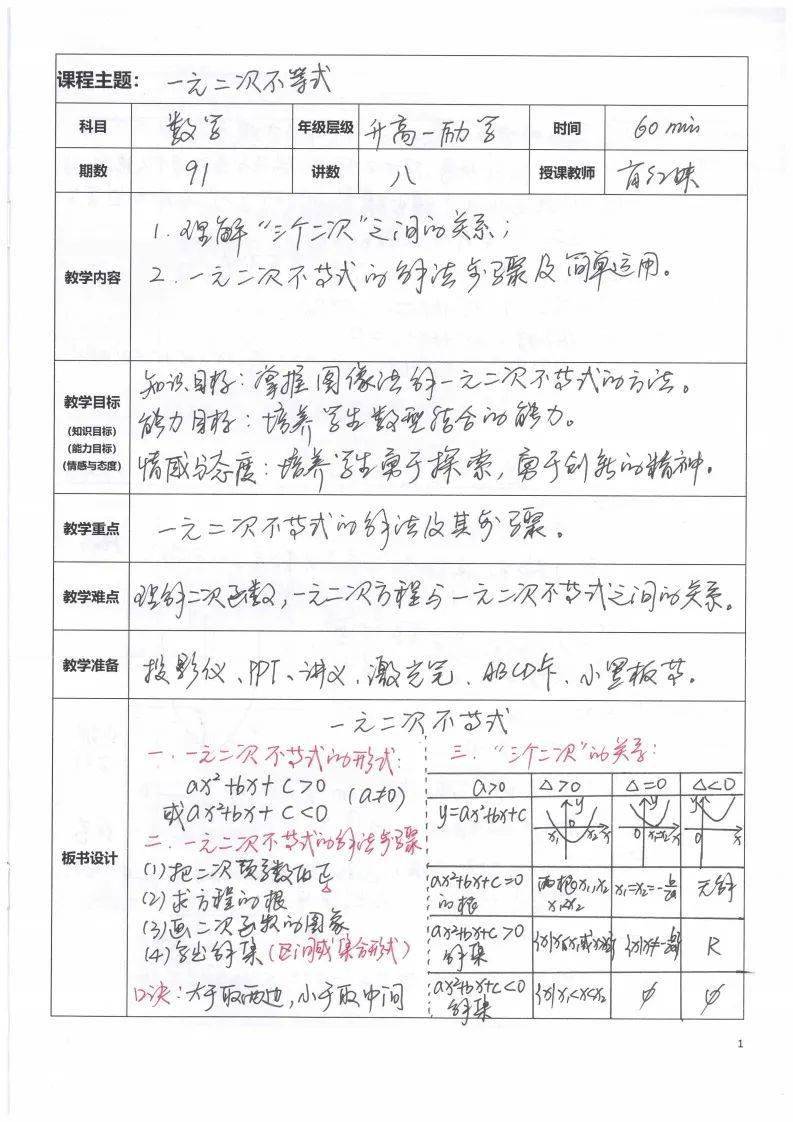 课程主题： 一元二次不等式
科目 数学 年级层级 升高一励学 时间 60 min
期数 91 讲数 八 授课教师
教学内容
1. 理解“三个二次”之间的关系；
2. 一元二次不等式的解法步骤及简单运用。
教学目标
(知识目标)
(能力目标)
(情感与态度)
知识目标：掌握图像法解一元二次不等式的方法。
能力目标：培养学生数型结合的能力。
情感与态度：培养学生勇于探索，勇于创新的精神。
教学重点 一元二次不等式的解法及其步骤。
教学难点 理解二次函数，一元二次方程与一元二次不等式之间的关系。
教学准备 投影仪、PPT、讲义、激光笔、ABCD卡、小黑板等。
板书设计
一元二次不等式
一．一元二次不等式的形式：
ax²+bx+c>0
或ax²+bx+c<0 (a≠0)
二．一元二次不等式的解法步骤
(1)把二次项系数化正
(2)求方程的根
(3)画二次函数的图象
(4)写出解集(区间或集合形式)
口诀：大于取两边，小于取中间
三．“三个二次”的关系：
a>0 Δ>0 Δ=0 Δ<0
y=ax²+bx+c
y x₁ 0 x₂ x
y 0 x₁=x₂ x
y 0 x
ax²+bx+c=0的根 两根x₁,x₂ x₁<x₂ x₁=x₂=-b/2a 无解
ax²+bx+c>0解集 {x|x<x₁或x>x₂} {x|x≠-b/2a} R
ax²+bx+c<0解集 {x|x₁<x<x₂} ∅ ∅
1